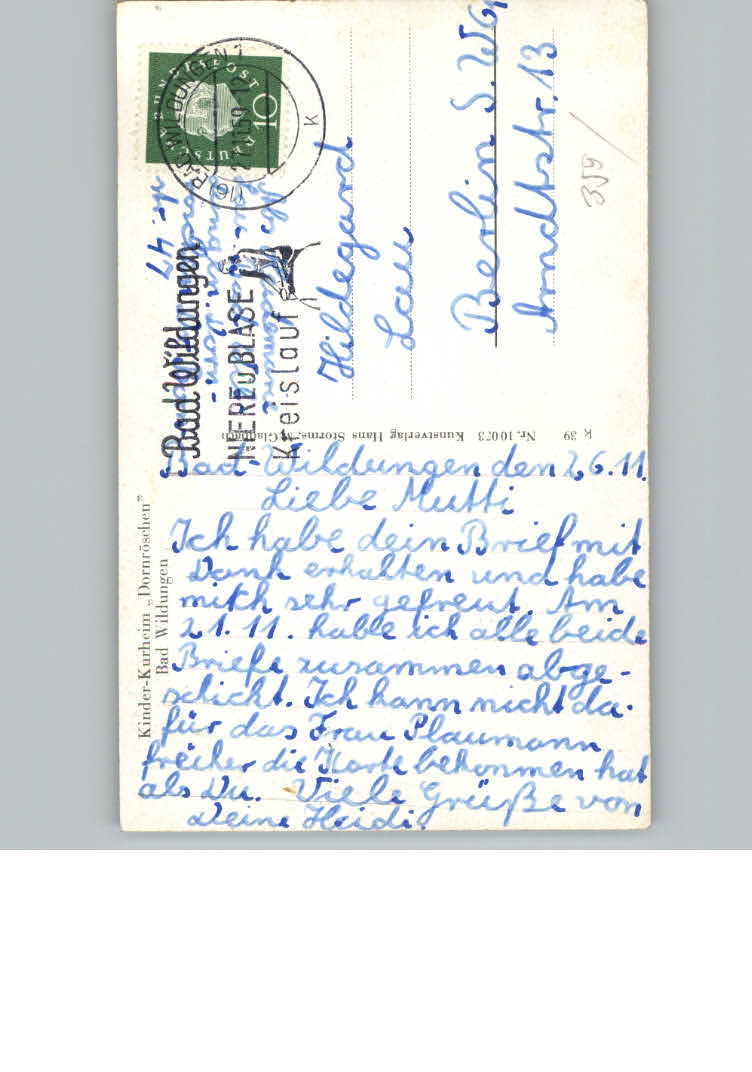 Bad-Wildungen den 26.11.
Liebe Mutti
Ich habe dein Brief mit
Dank erhalten und habe
mich sehr gefreut. Am
21.11. habe ich alle beide
Briefe zusammen abge-
schickt. Ich kann nicht da-
für das Frau Plaumann
früher die Karte bekommen hat
als Du. Viele Grüße von
Deine Heidi.
Kinder-Kurheim „Dornröschen”
Bad Wildungen
K 39 Nr. 10073 Kunstverlag Hans Storms, M.Gladbach
Hildegard
Lau
Berlin S.W.
Arndtstr. 13
359
DEUTSCHE BUNDESPOST
10
(16) BAD WILDUNGEN 1
K
Bad Wildungen
NIERE U. BLASE
Kreislauf
str. 47